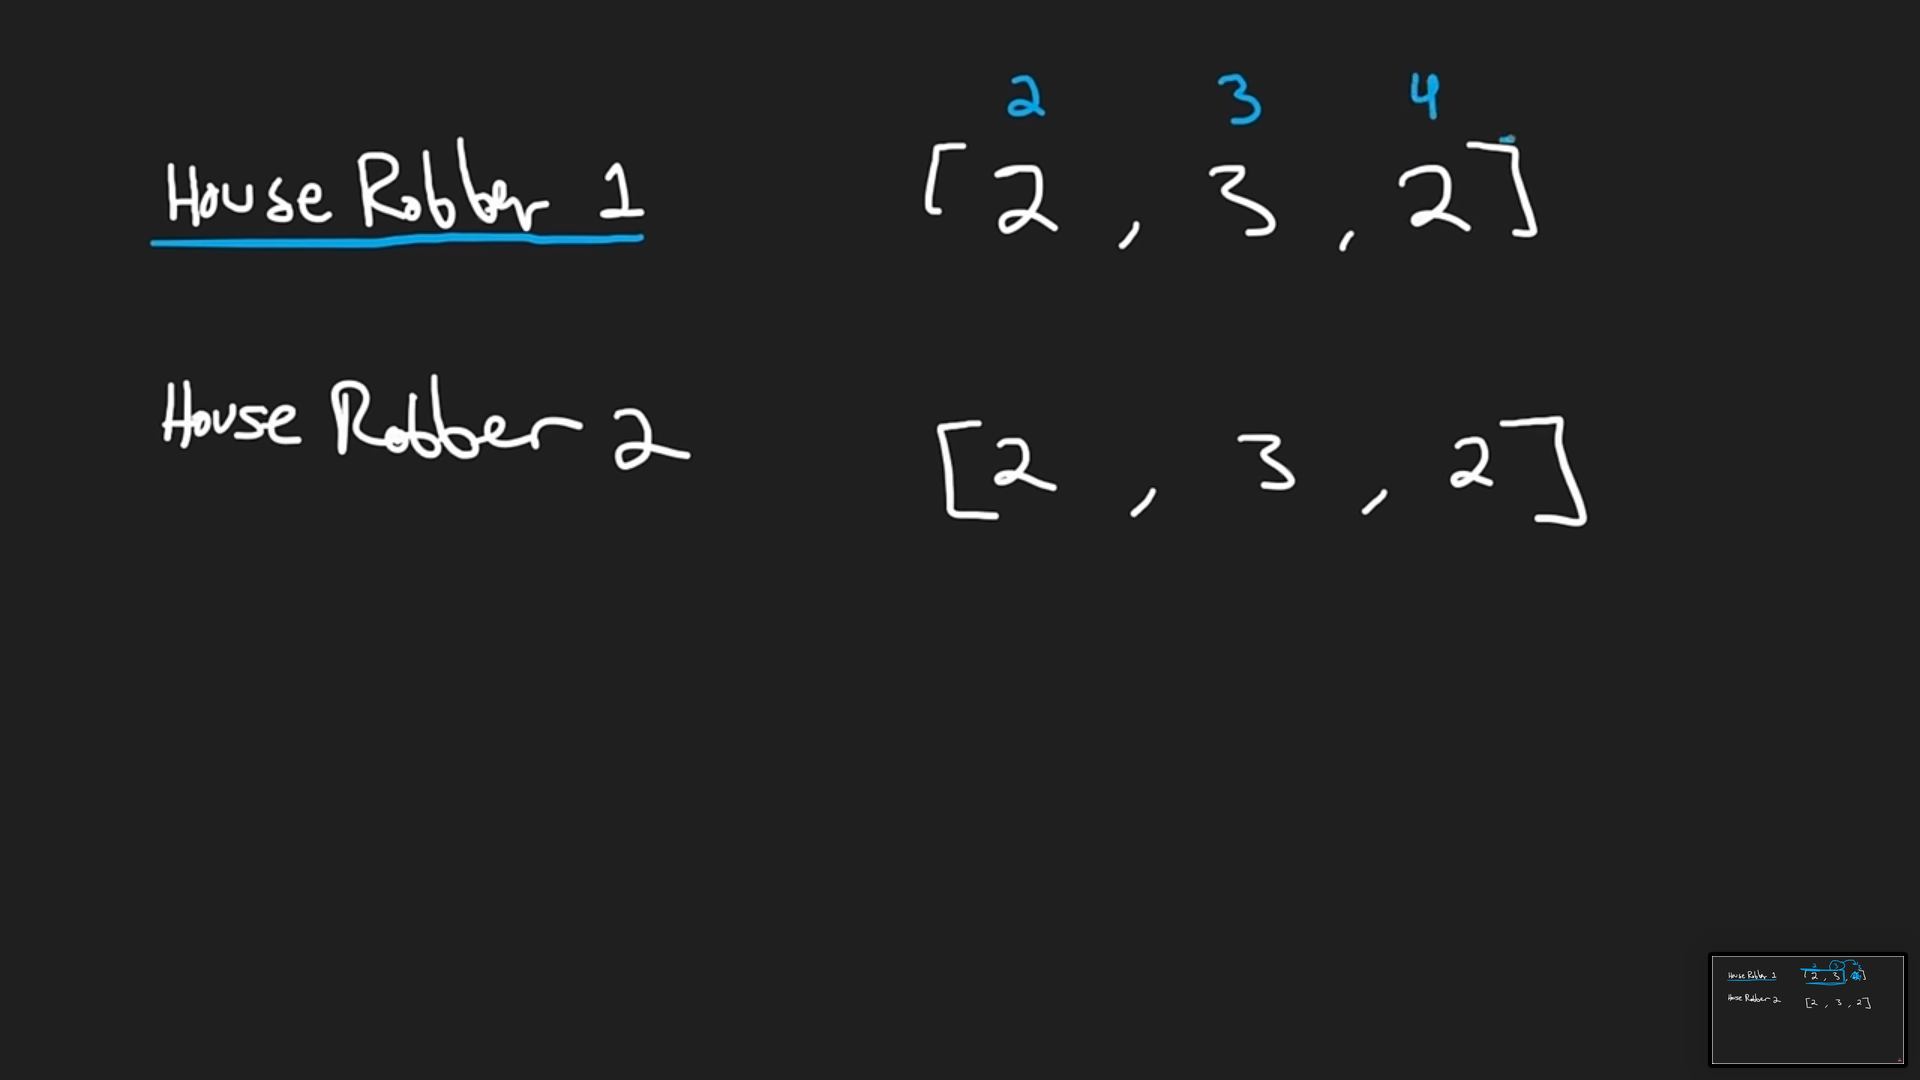 2 3 4
House Robber 1 [2, 3, 2]
House Robber 2 [2, 3, 2]
House Robber 1 [2, 3, ]
House Robber 2 [2, 3, 2]